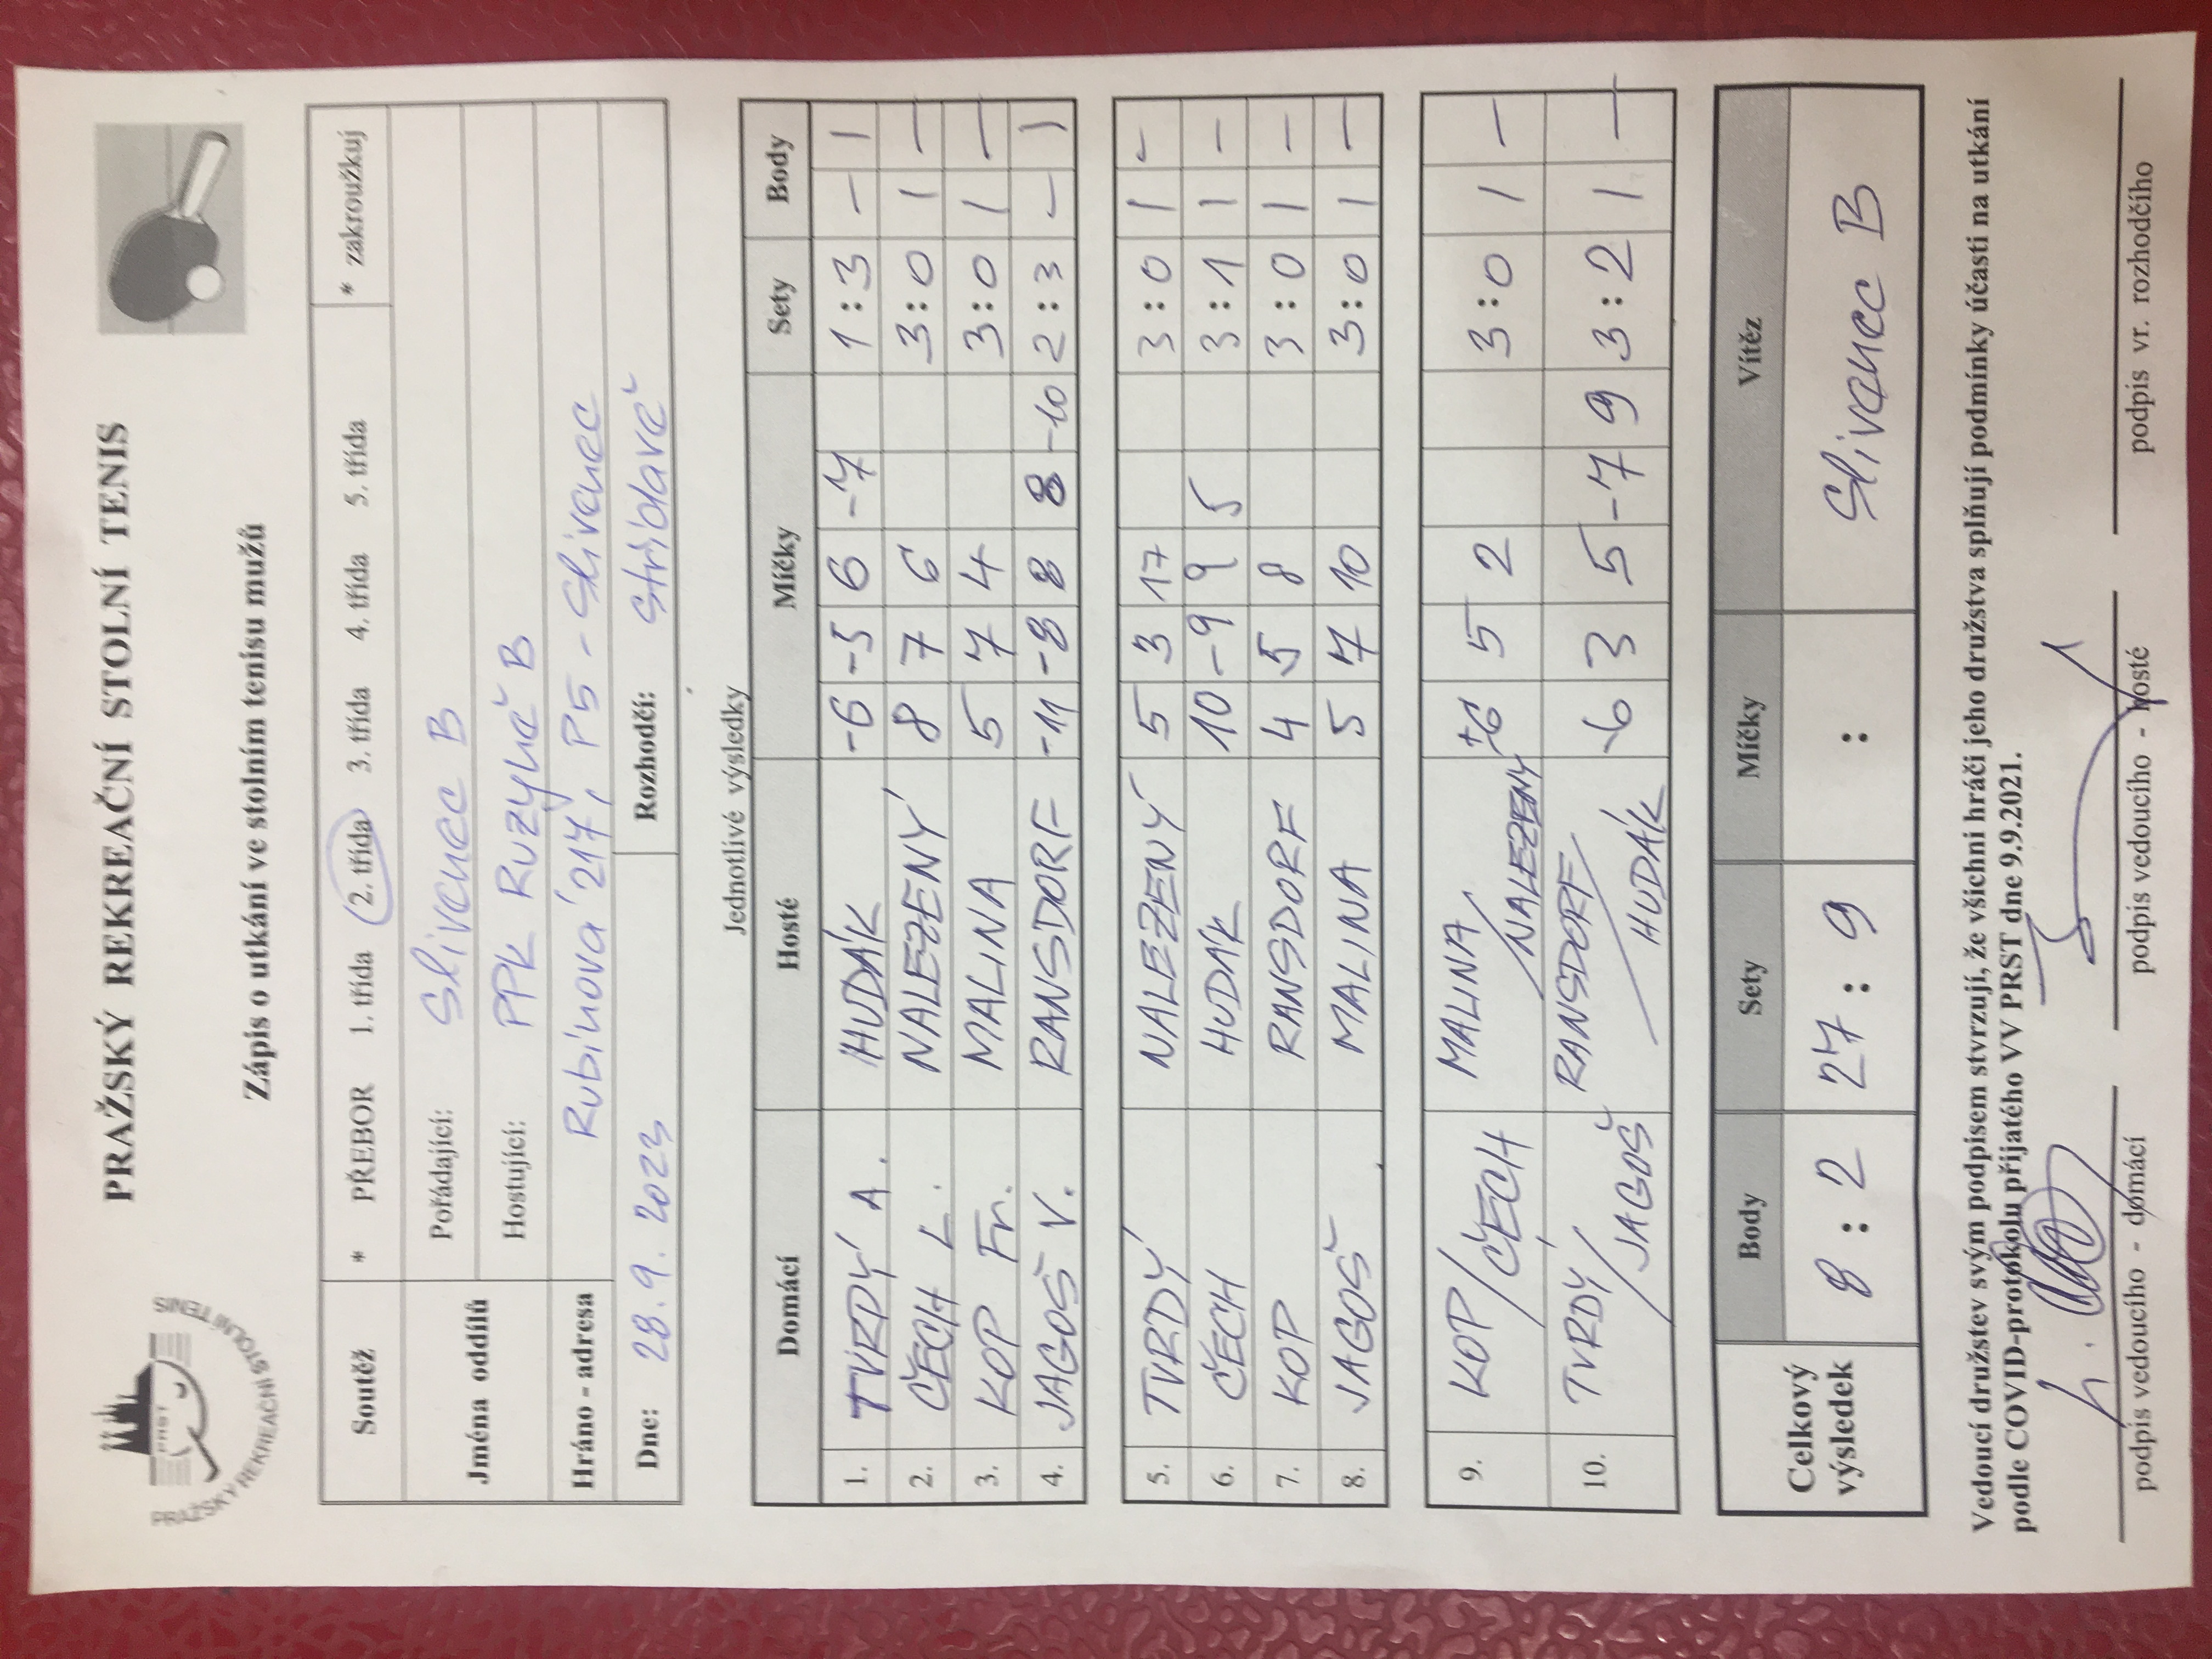 PRAŽSKÝ REKREAČNÍ STOLNÍ TENIS
PRST
PRAŽSKÝ REKREAČNÍ STOLNÍ TENIS
Zápis o utkání ve stolním tenisu mužů
Soutěž * PŘEBOR 1. třída 2. třída 3. třída 4. třída 5. třída * zakroužkuj
Jména oddílů
Pořádající: Slivenec B
Hostující: PPK Ruzyně B
Hráno - adresa Rubínová 217, P5 - Slivenec
Dne: 28.9.2023 Rozhodčí: střídavě
Jednotlivé výsledky
Domácí Hosté Míčky Sety Body
1. TVRDÝ A. HUDÁK -6 -5 6 -7 1:3 – 1
2. ČECH L. NALEZENÝ 8 7 6 3:0 1 –
3. KOP Fr. MALINA 5 7 4 3:0 1 –
4. JAGOŠ V. RANSDORF -11 -8 8 8 -10 2:3 – 1
5. TVRDÝ NALEZENÝ 5 3 17 3:0 1 –
6. ČECH HUDÁK 10 -9 9 5 3:1 1 –
7. KOP RANSDORF 4 5 8 3:0 1 –
8. JAGOŠ MALINA 5 7 10 3:0 1 –
9. KOP/ČECH MALINA/NALEZENÝ +6 5 2 3:0 1 –
10. TVRDÝ/JAGOŠ RANSDORF/HUDÁK -6 3 5 -7 9 3:2 1 –
Celkový výsledek Body Sety Míčky Vítěz
8 : 2 27 : 9 : Slivenec B
Vedoucí družstev svým podpisem stvrzují, že všichni hráči jeho družstva splňují podmínky účasti na utkání
podle COVID-protokolu přijatého VV PRST dne 9.9.2021.
podpis vedoucího - domácí podpis vedoucího - hosté podpis vr. rozhodčího